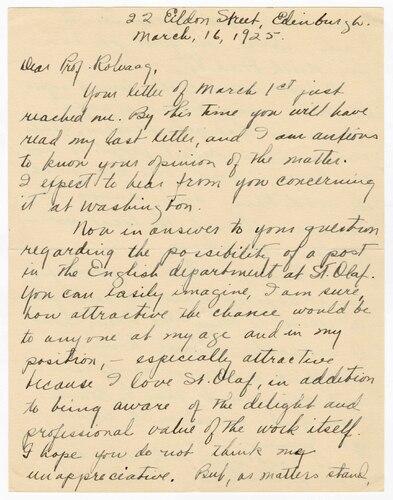 22 Eildon Street, Edinburgh.
March, 16, 1925.
Dear Prof. Rolvaag,
Your letter of March 1st just
reached me. By this time you will have
read my last letter, and I am anxious
to know your opinion of the matter.
I expect to hear from you concerning
it at Washington.
Now in answer to your question
regarding the possibility of a post
in the English department at St. Olaf.
You can easily imagine, I am sure,
how attractive the chance would be
to anyone at my age and in my
position, — especially attractive
because I love St. Olaf, in addition
to being aware of the delight and
professional value of the work itself.
I hope you do not think me
unappreciative. But, as matters stand,